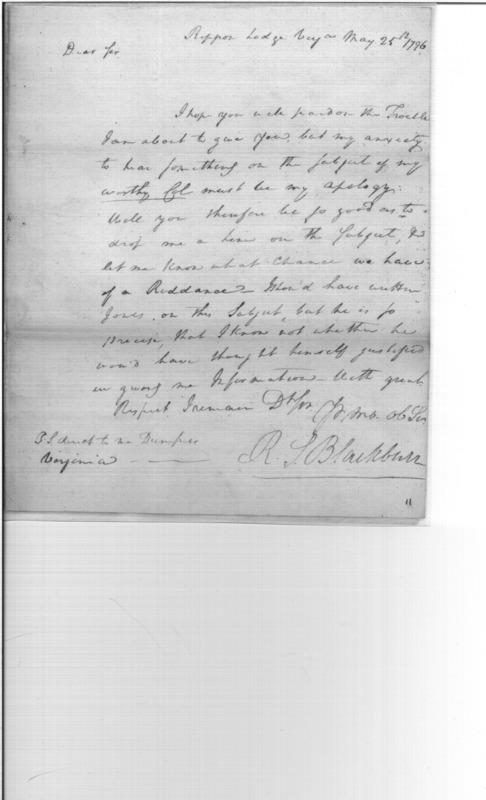 Rippon Lodge Virga May 25th 1796
Dear Sir
I hope you will pardon the Trouble
I am about to give you, but my anxiety
to hear something on the subject of my
worthy Col must be my apology.
Will you therefore be so good as to
drop me a line on the Subject, &
let me know what Chance we have
of a Riddance I shou'd have written
Jones on this Subject, but he is so
precise, that I know not whether he
wou'd have thought himself justified
in giving me Information With great
Respect I remain Dr Sir Yr mo. ob Ser
R. S. Blackburn
P.S. direct to me Dumfries
Virginia
11